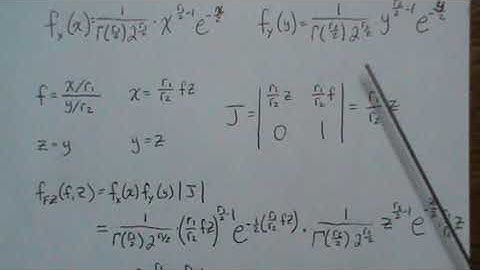 fₓ(x) = 1/(Γ(r₁/2) 2^(r₁/2)) · x^(r₁/2 - 1) e^(-x/2)    f_Y(y) = 1/(Γ(r₂/2) 2^(r₂/2)) y^(r₂/2 - 1) e^(-y/2)
f = (x/r₁)/(y/r₂)    x = r₁/r₂ fz    J = | r₁/r₂ z   r₁/r₂ f |
z = y    y = z    | 0   1 | = r₁/r₂ z
f_FZ(f,z) = fₓ(x) f_Y(y) |J|
= 1/(Γ(r₁/2) 2^(r₁/2)) · (r₁/r₂ fz)^(r₁/2 - 1) e^(-1/2 (r₁/r₂ fz)) · 1/(Γ(r₂/2) 2^(r₂/2)) z^(r₂/2 - 1) e